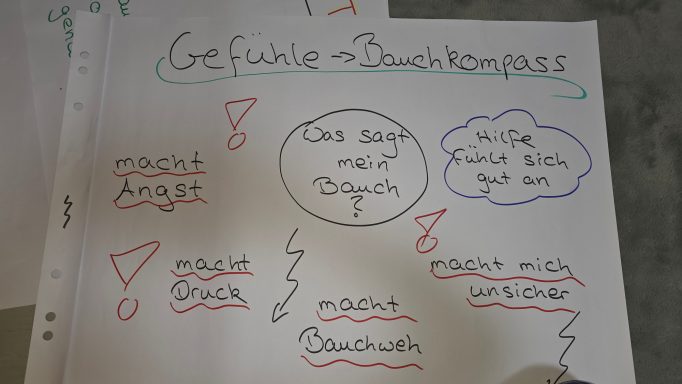 Gefühle → Bauchkompass
macht
Angst
Was sagt
mein
Bauch
?
Hilfe
fühlt sich
gut an
macht
Druck
macht
Bauchweh
macht mich
unsicher